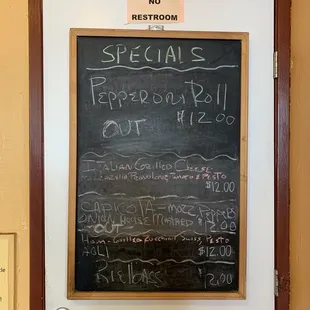 NO
RESTROOM
SPECIALS
PEPPERONI ROLL
OUT $12.00
ITALIAN GRILLED CHEESE
PROVOLONE, TOMATO & PESTO
$12.00
CAPICOLA - MOZZ, PEPPERS
ONION HOUSE MUSTARD
OUT 12.00
HAM - GRILLED ZUCCHINI SWISS, PESTO
AOLI $12.00
12.00